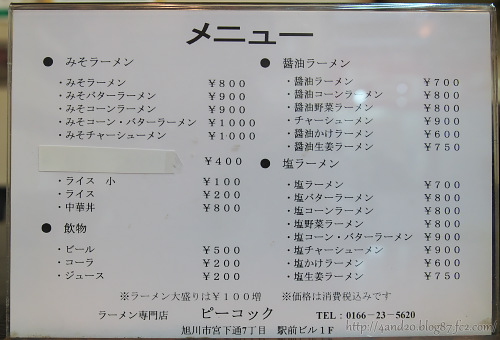 メニュー
● みそラーメン
・みそラーメン ￥８００
・みそバターラーメン ￥９００
・みそコーンラーメン ￥９００
・みそコーン・バターラーメン ￥１０００
・みそチャーシューメン ￥１０００
￥４００
・ライス 小 ￥１００
・ライス ￥２００
・中華丼 ￥８００
● 飲物
・ビール ￥５００
・コーラ ￥２００
・ジュース ￥２００
● 醤油ラーメン
・醤油ラーメン ￥７００
・醤油コーンラーメン ￥８００
・醤油野菜ラーメン ￥８００
・チャーシューメン ￥９００
・醤油かけラーメン ￥６００
・醤油生姜ラーメン ￥７５０
● 塩ラーメン
・塩ラーメン ￥７００
・塩バターラーメン ￥８００
・塩コーンラーメン ￥８００
・塩野菜ラーメン ￥８００
・塩コーン・バターラーメン ￥９００
・塩チャーシューメン ￥９００
・塩かけラーメン ￥６００
・塩生姜ラーメン ￥７５０
※ラーメン大盛りは￥１００増 ※価格は消費税込みです
ラーメン専門店 ピーコック TEL：0166－23－5620
旭川市宮下通7丁目 駅前ビル１F
http://4and20.blog87.fc2.com/